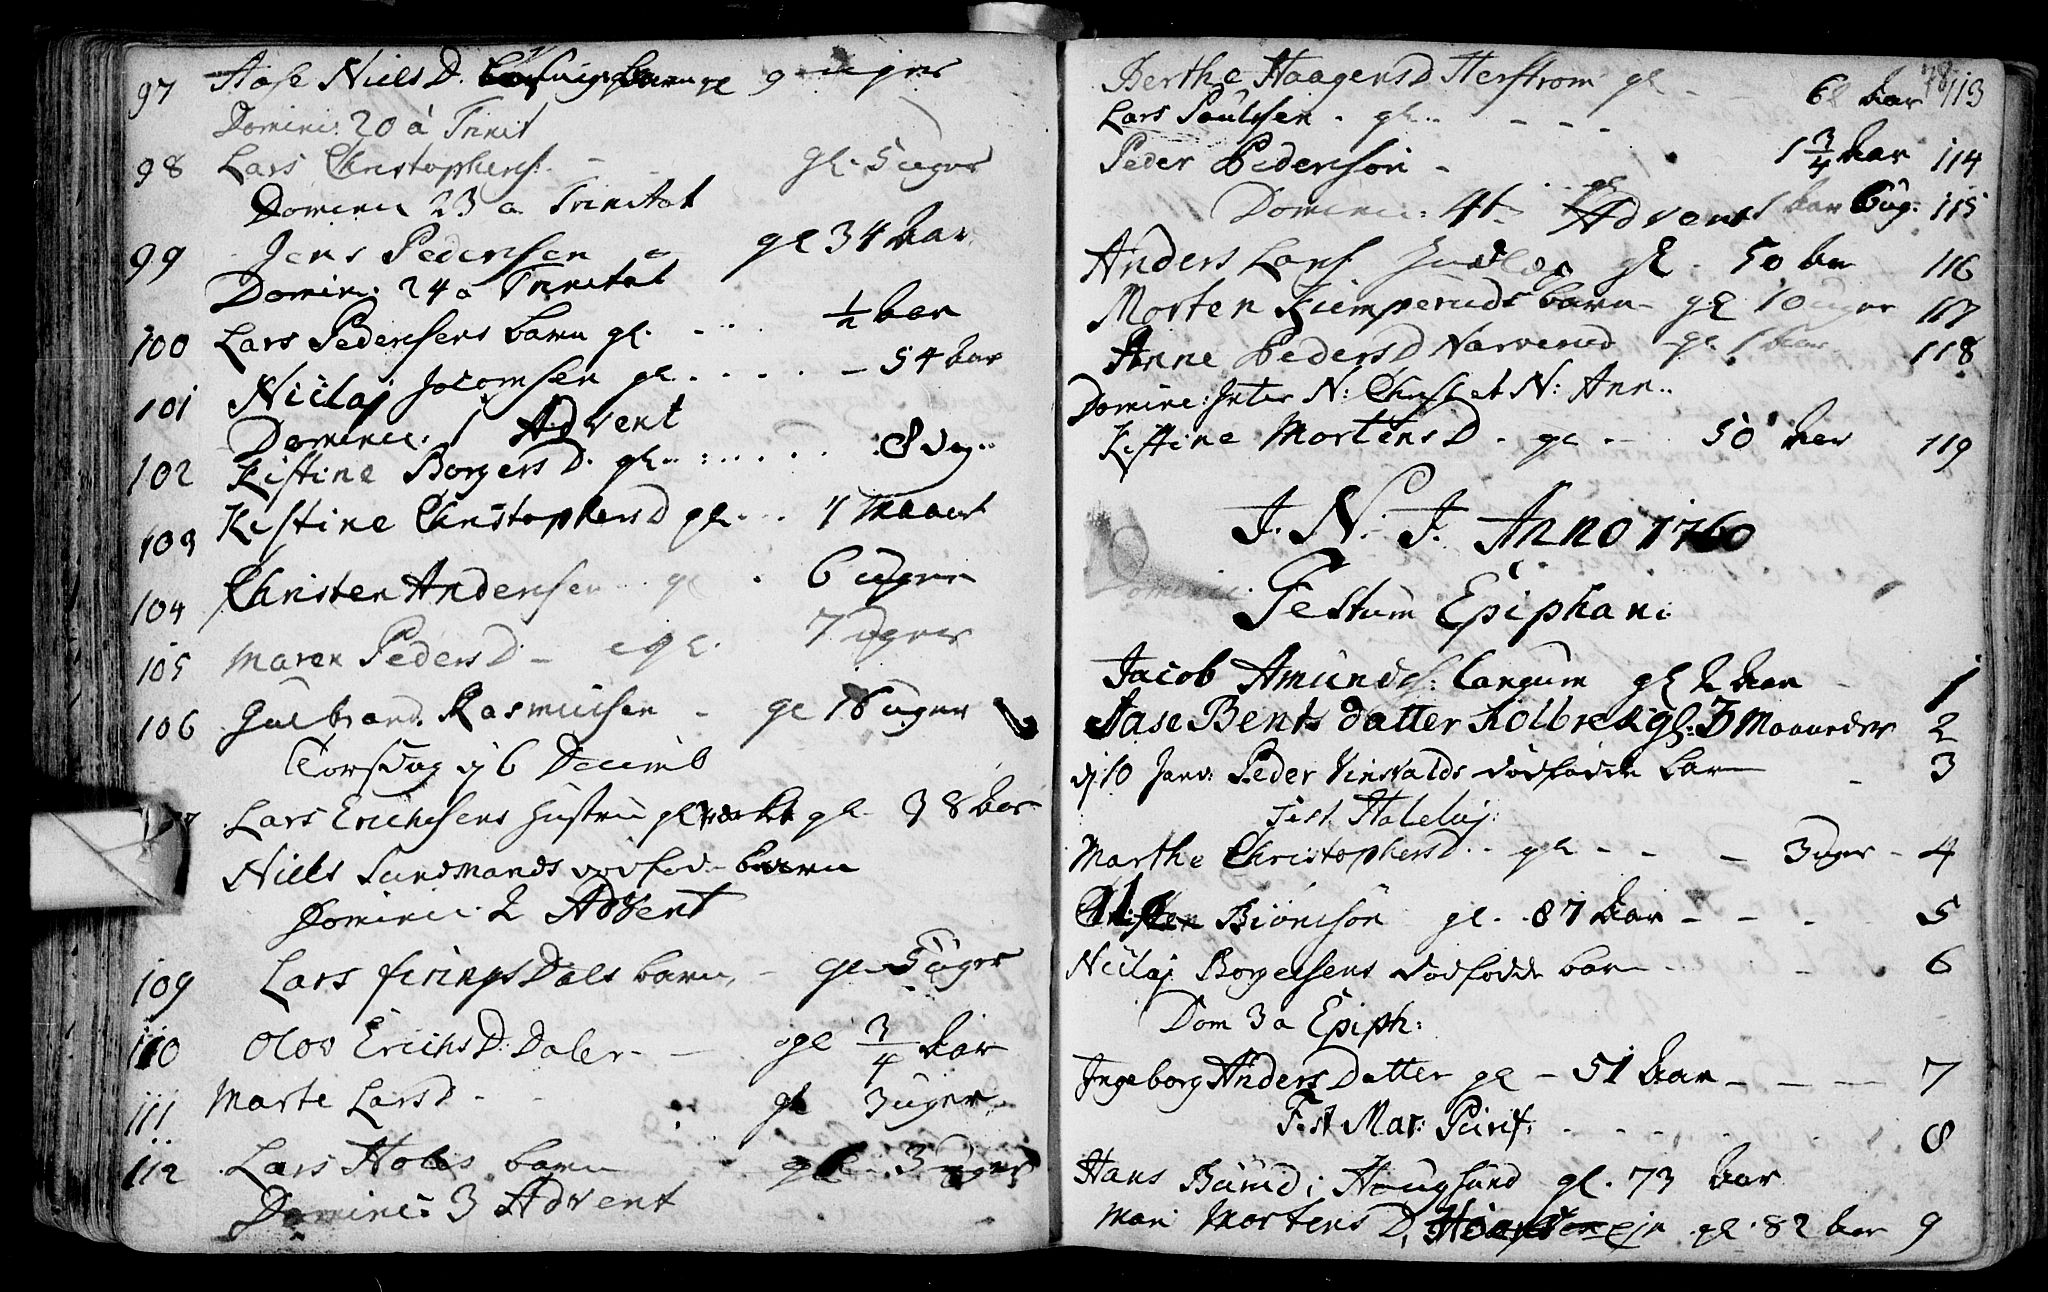 97 Aase Niels D. gl 9 uger
Dominic: 20 à Trinit
98 Lars Christophers. - gl. 5 uger
Dominic 23 a Trinitat
99 Jens Pedersen gl 34 aar
Dominic: 24 a Trinitat
100 Lars Pedersens barn gl. - ... ½ aar
101 Niclaj Jocomsen gl. . . . . - 54 aar
Dominic. 1 Advent
102 Kistine Borgers D. gl. . : . . . . 8 dag..
103 Kistine Christophers D gl. . . 1 Maanet
104 Christen Andersen gl . 6 uger
105 Maren Peders D - gl. 7 uger
106 Gulbrand Rasmusen - gl 16 uger
Torsdag d 6 Decemb
Lars Erichsens Hustru gl. 38 aar
Niels Sundmands dødfød barn
Dominic. 2 Advent
109 Lars firings Dals barn, - gl. 5 uger
110 Olov Erichs D: Daler - - gl ¾ aar
111 Marte Lars D - - gl 3 uger
112 Lars Holes barn gl. 3 uger
Dominic: 3 Advent
78
Berthe Haagens D Herstrom gl - - 62 aar 113
Lars Poulssen - gl.. - - - 1 ¾ aar 114
Peder Pedersøn - gl 1 aar 6 ug: 115
Dominic: 4t Advent
Anders Lars. gl. 50 aar 116
Morten Kiemperuds barn - gl 10 uger 117
Anne Peders D Narverud - gl 1 aar 118
Dominic: Inter N: Christ et N: Ann..
Kistine Mortens D - gl. - 50 aar 119
J. N. J. Anno 1760
Dominic: Festum Epiphani:
Jacob Amunds: Langum gl 2 aar - 1
Aase Bents datter Kolbrek gl: 3 Maaneder 2
d. 10 Janv: Peder Vinsvalds dødfødde barn - 3
Marthe Christophers D - gl - - - 3 uger - 4
Christen Biørnsøn gl. 87 aar - - - 5
Niclaj Borgersens dødfødde barn - . - . 6
Dom 3 a Epiph:
Ingeborg Anders Datter gl - 51 aar - - - 7
Fest Mar: Purif: . - - - . 8
Hans Haugsund gl. 73 aar
Mari Mortens D, gl. 82 aar 9